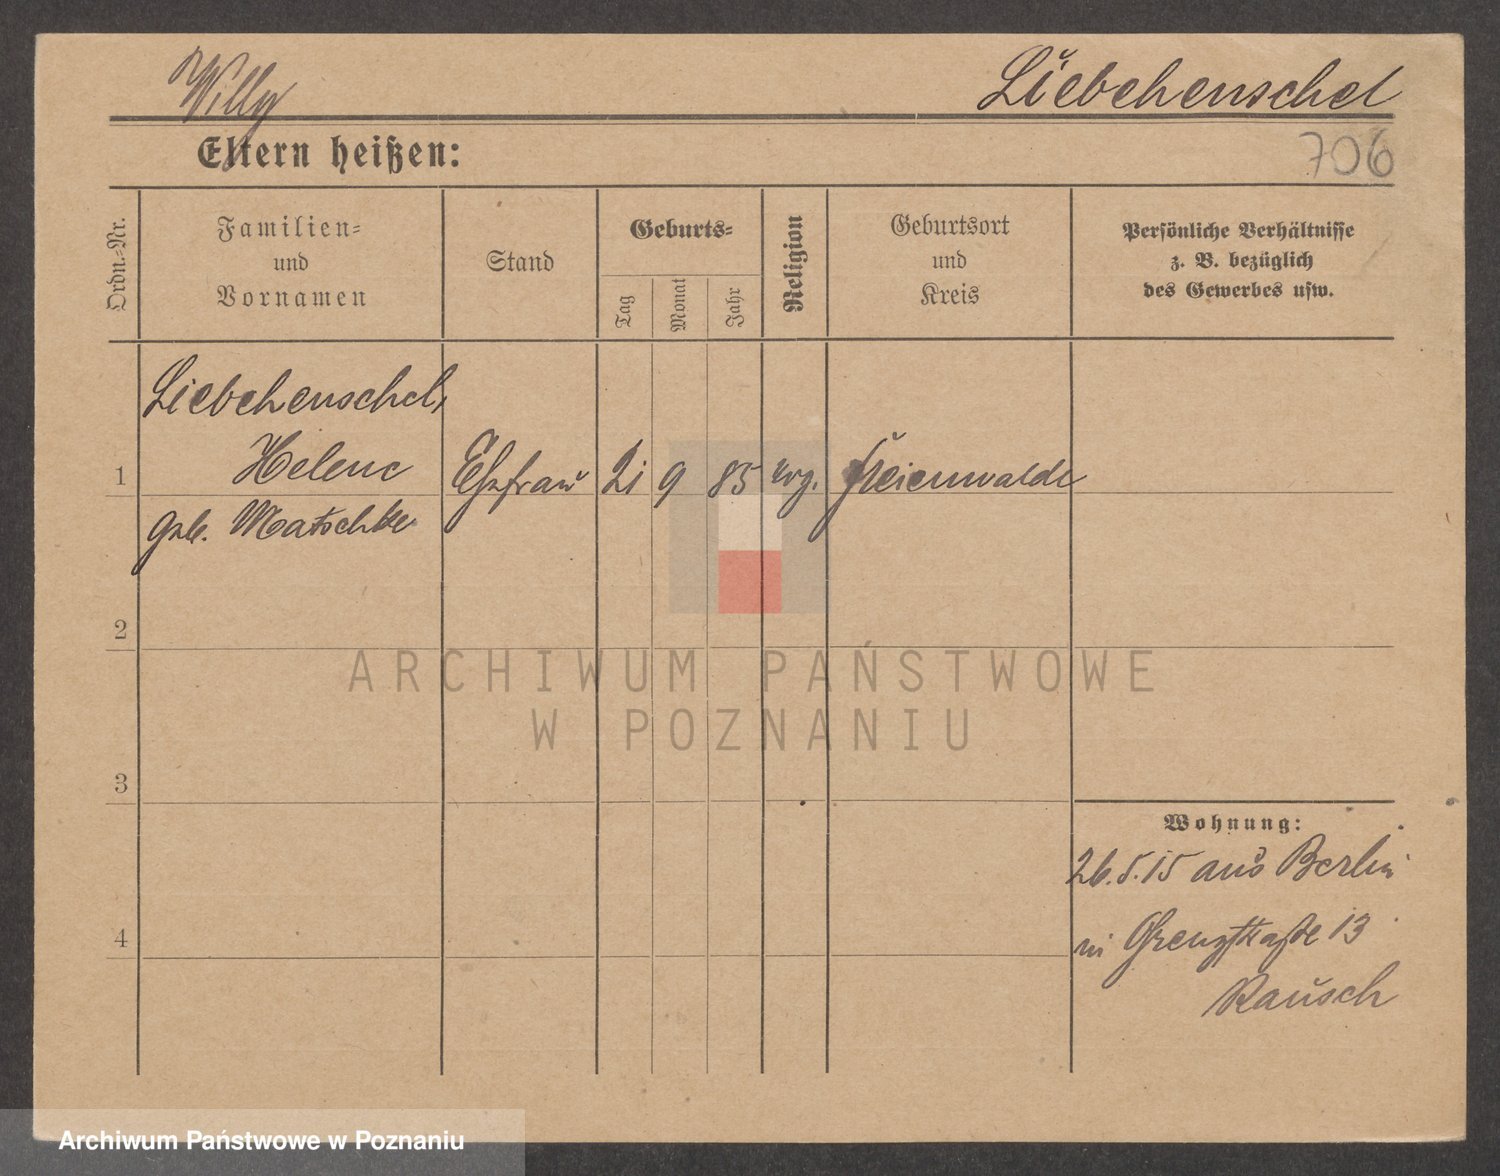 Willy Liebehenschel
Eltern heißen:
706
Ordn.-Nr.
Familien-
und
Vornamen
Stand
Geburts-
Tag
Monat
Jahr
Religion
Geburtsort
und
Kreis
Persönliche Verhältnisse
z. B. bezüglich
des Gewerbes usw.
Liebehenschel,
1 Helene Ehefrau 21 9 85 evg. Freienwalde
geb. Matschke
2
ARCHIWUM PAŃSTWOWE
W POZNANIU
3
Wohnung:
26.5.15 aus Berlin
4 in Grenzstraße 13
Rausch
Archiwum Państwowe w Poznaniu